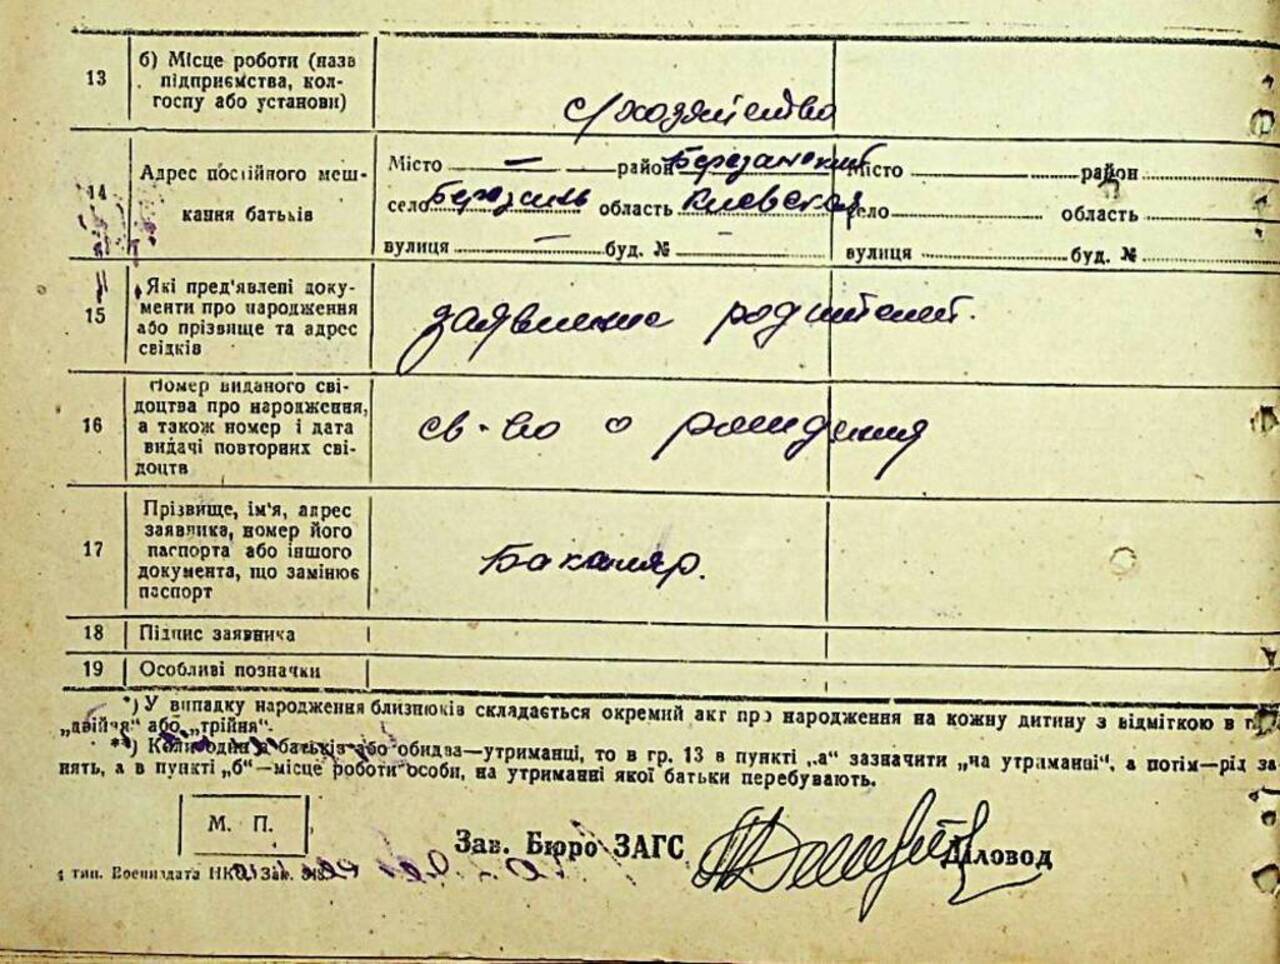 13
б) Місце роботи (назва
підприємства, кол-
госпу або установи)
с/хозяйство
14
Адрес постійного меш-
кання батьків
Місто — район Березанский
село Березань область Киевская
вулиця — буд. № —
Місто район
село область
вулиця буд. №
15
Які пред'явлені доку-
менти про народження
або прізвище та адрес
свідків
заявление родителей.
16
Номер виданого сві-
доцтва про народження,
а також номер і дата
видачі повторних сві-
доцтв
св-во о рождения
17
Прізвище, ім'я, адрес
заявника, номер його
паспорта або іншого
документа, що замінює
паспорт
18 Підпис заявника
19 Особливі позначки
*) У випадку народження близнюків складається окремий акт про народження на кожну дитину з відміткою в г
„двійня“ або „трійня“.
**) Коли один з батьків або обидва—утриманці, то в гр. 13 в пункті „а“ зазначити „на утриманні“, а потім—рід за-
нять, а в пункті „б“—місце роботи особи, на утриманні якої батьки перебувають.
М. П.
Зав. Бюро ЗАГС
Діловод
тип. Воениздата НКО. Зак.